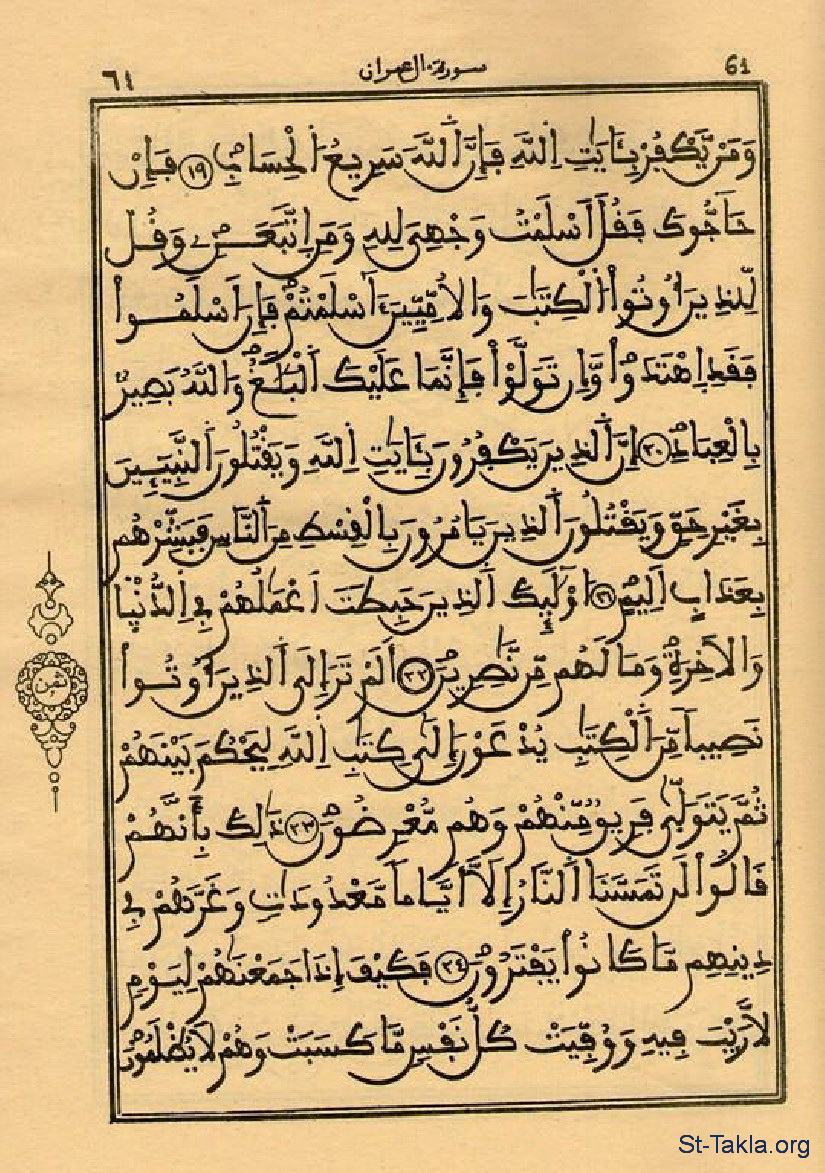 61 سورة ال عمران ٦١
وَمَنْ يَّكْفُرْ بِـَٔايَٰتِ اِ۬للَّهِ فَإِنَّ اَ۬للَّهَ سَرِيعُ اُ۬لْحِسَابِ ١٩ فَإِنْ
حَآجُّوكَ فَقُلَ اَسْلَمْتُ وَجْهِيَ لِلهِ وَمَنِ اِ۪تَّبَعَنِۦ وَقُل
لِّلذِينَ أُوتُوا۟ اُ۬لْكِتَٰبَ وَالُامِّيِّـۧنَ ءَآسْلَمْتُمْ فَإِنَ اَسْلَمُوا۟
فَقَدِ اِ۪هْتَدَوا۟ وَّإِن تَوَلَّوْا۟ فَإِنَّمَا عَلَيْكَ اَ۬لْبَلَٰغُ وَاللَّهُ بَصِيرٌۢ
بِالْعِبَادِ ٢٠ إِنَّ اَ۬لذِينَ يَكْفُرُونَ بِـَٔايَٰتِ اِ۬للَّهِ وَيَقْتُلُونَ اَ۬لنَّبِيٓـِٕينَ
بِغَيْرِ حَقٍّ وَيَقْتُلُونَ اَ۬لذِينَ يَامُرُونَ بِالْقِسْطِ مِنَ اَ۬لنَّاسِ فَبَشِّرْهُم
بِعَذَابٍ اَلِيمٍ ٢١ ا۟وْلَٰٓئِكَ اَ۬لذِينَ حَبِطَتَ اَعْمَٰلُهُمْ فِے اِ۬لدُّنْيَا
وَالَاخِرَةِ وَمَا لَهُم مِّن نَّٰصِرِينَ ٢٢ أَلَمْ تَرَ إِلَى اَ۬لذِينَ أُوتُوا۟
ثمن
نَصِيباً مِّنَ اَ۬لْكِتَٰبِ يُدْعَوْنَ إِلَىٰ كِتَٰبِ اِ۬للَّهِ لِيَحْكُمَ بَيْنَهُمْ
ثُمَّ يَتَوَلَّىٰ فَرِيقٌ مِّنْهُمْ وَهُم مُّعْرِضُونَ ٢٣ ذَٰلِكَ بِأَنَّهُمْ
قَالُوا۟ لَن تَمَسَّنَا اَ۬لنَّارُ إِلَّآ أَيَّاماً مَّعْدُودَٰتٍ وَغَرَّهُمْ فِے
دِينِهِم مَّا كَانُوا۟ يَفْتَرُونَ ٢٤ فَكَيْفَ إِذَا جَمَعْنَٰهُمْ لِيَوْمٍ
لَّا رَيْبَ فِيهِ وَوُفِّيَتْ كُلُّ نَفْسٍ مَّا كَسَبَتْ وَهُمْ لَا يُظْلَمُونَ
St-Takla.org